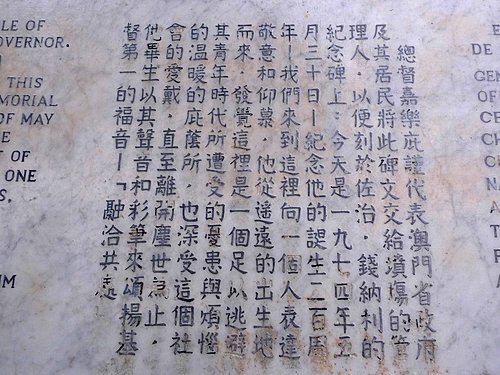 LE OF
OVERNOR.
THIS
MORIAL
OF MAY
E
T OF
ONE
S.
UM
總督嘉樂庇謹代表澳門省政府
及其居民將此碑文交給墳塲的管
理人．以便刻於佐治．錢納利的
紀念碑上：今天是一九七四年五
月三十日—紀念他的誕生二百周
年—我們來到這裡向一個人表達
敬意和仰慕．他從遙遠的出生地
而來．發覺這裡是一個足以逃避
其青年時代所遭受的憂患與煩惱
的溫暖的庇蔭所．也深受這個社
會的愛戴．直至離開塵世為止．
他畢生以其聲音和彩筆來頌揚基
督第一的福音—「融洽共處
DE